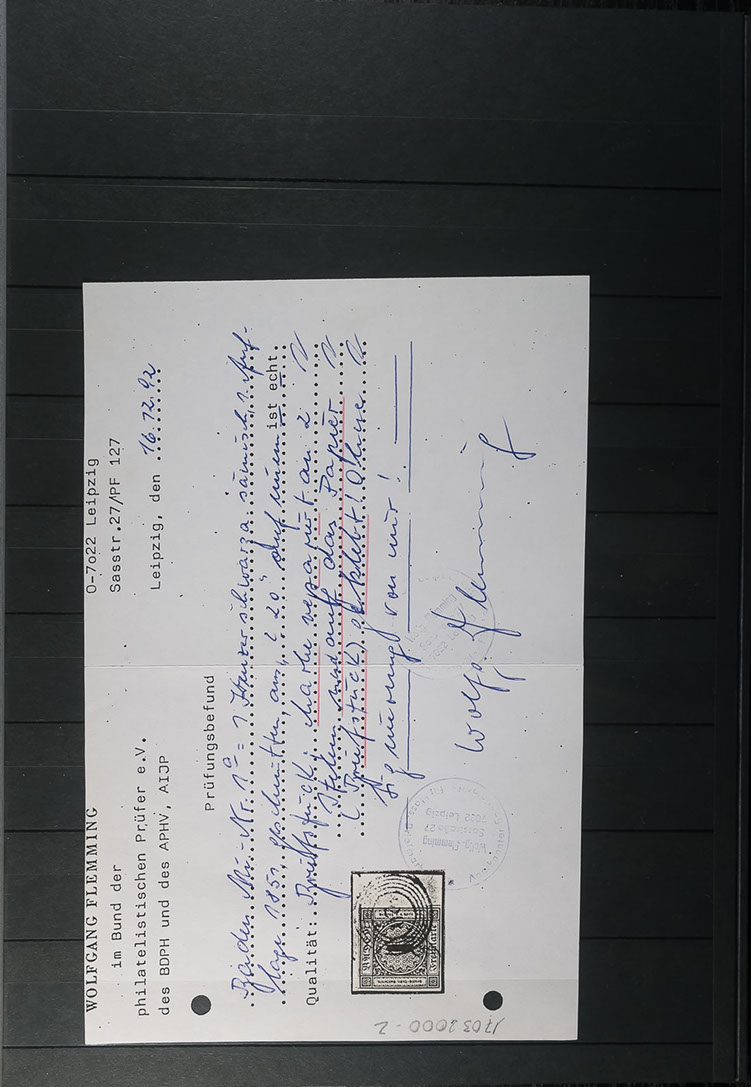 WOLFGANG FLEMMING
im Bund der
philatelistischen Prüfer e.V.
des BDPH und des APHV, AIJP
O-7o22 Leipzig
Sasstr.27/PF 127
Leipzig, den 16.12.92
Prüfungsbefund
Baden Mi.-Nr. 1a = 1 Kreuzer schwarz a. sämisch, 1. Auf-
lage 1851, geschnitten, aus "20" auf einem ist echt.
Qualität: Briefstück; Marke repariert an 2
Stellen und auf das Papier
(Briefstück) geklebt! Ohne
Signierung von mir!
Wolfg. Flemming
Wolfg. Flemming
Sasstraße 27
7022 Leipzig
Baden
Freimarke
17032000-2